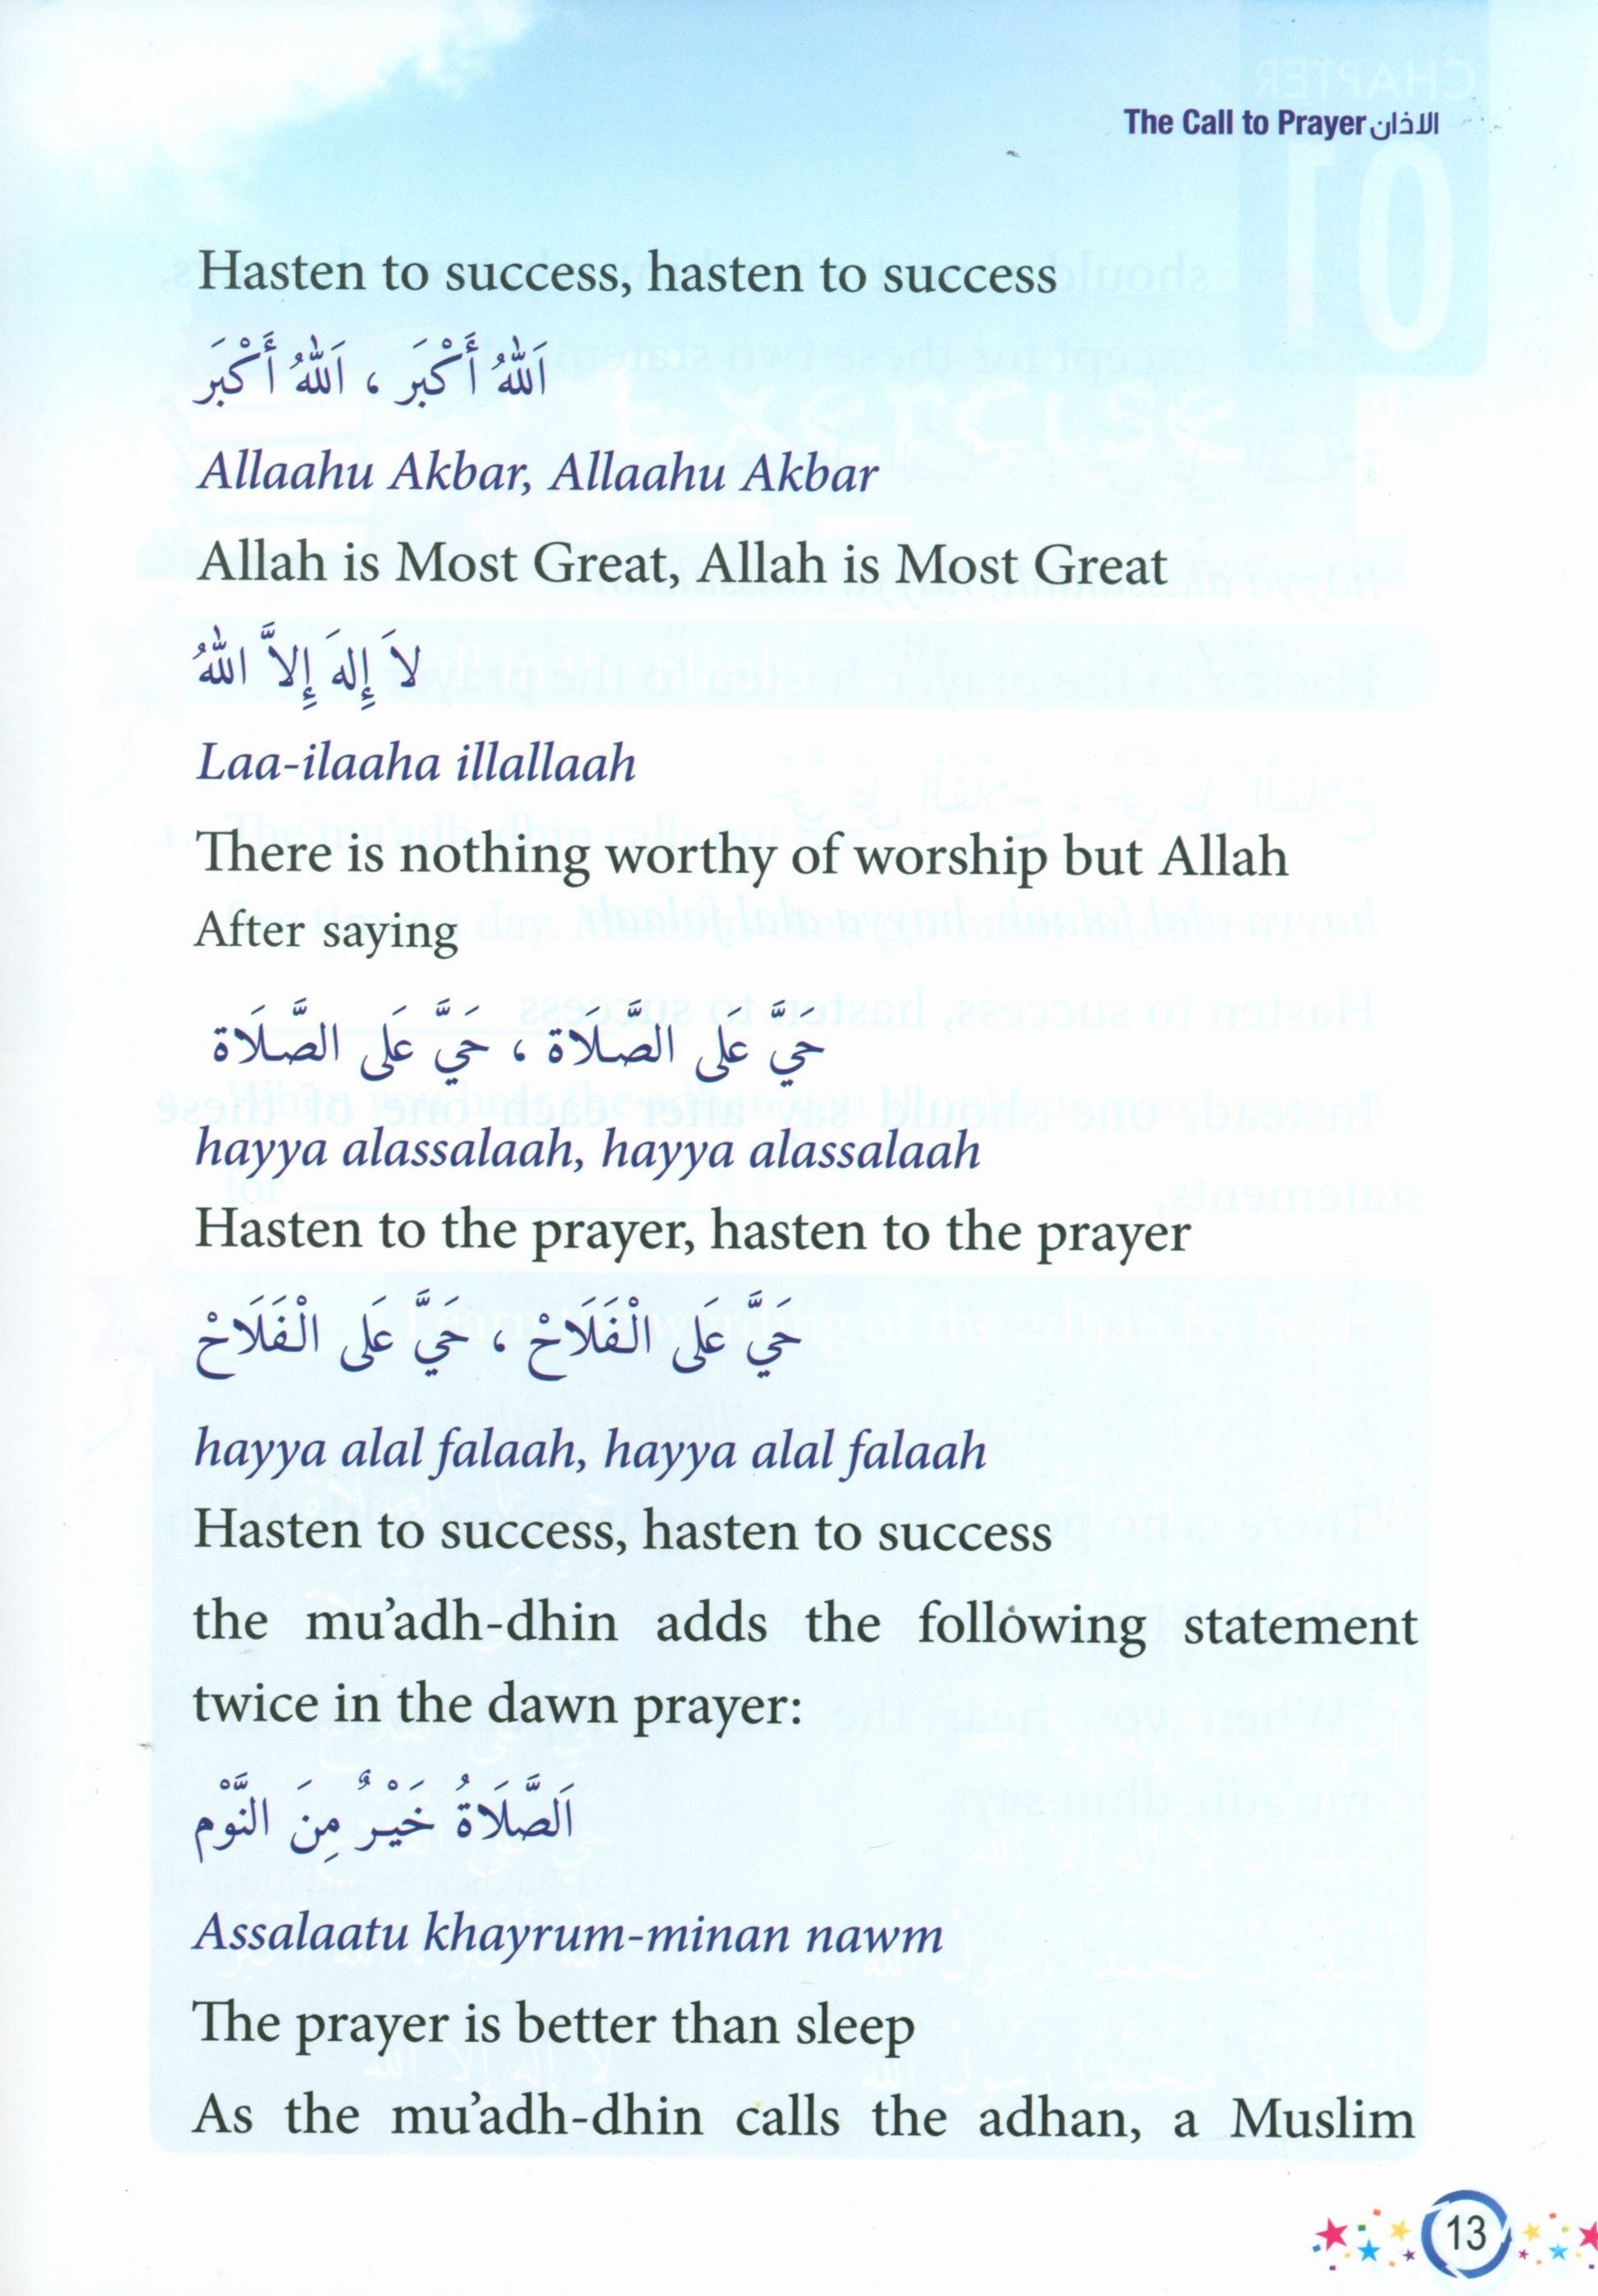 The Call to Prayer الاذان
Hasten to success, hasten to success
اَللهُ أَكْبَر ، اَللهُ أَكْبَر
Allaahu Akbar, Allaahu Akbar
Allah is Most Great, Allah is Most Great
لاَ إِلهَ إِلاَّ اللهُ
Laa-ilaaha illallaah
There is nothing worthy of worship but Allah
After saying
حَيَّ عَلَى الصَّلَاة ، حَيَّ عَلَى الصَّلَاة
hayya alassalaah, hayya alassalaah
Hasten to the prayer, hasten to the prayer
حَيَّ عَلَى الْفَلَاحْ ، حَيَّ عَلَى الْفَلَاحْ
hayya alal falaah, hayya alal falaah
Hasten to success, hasten to success
the mu’adh-dhin adds the following statement
twice in the dawn prayer:
اَلصَّلَاةُ خَيْرٌ مِنَ النَّوْم
Assalaatu khayrum-minan nawm
The prayer is better than sleep
As the mu’adh-dhin calls the adhan, a Muslim
13